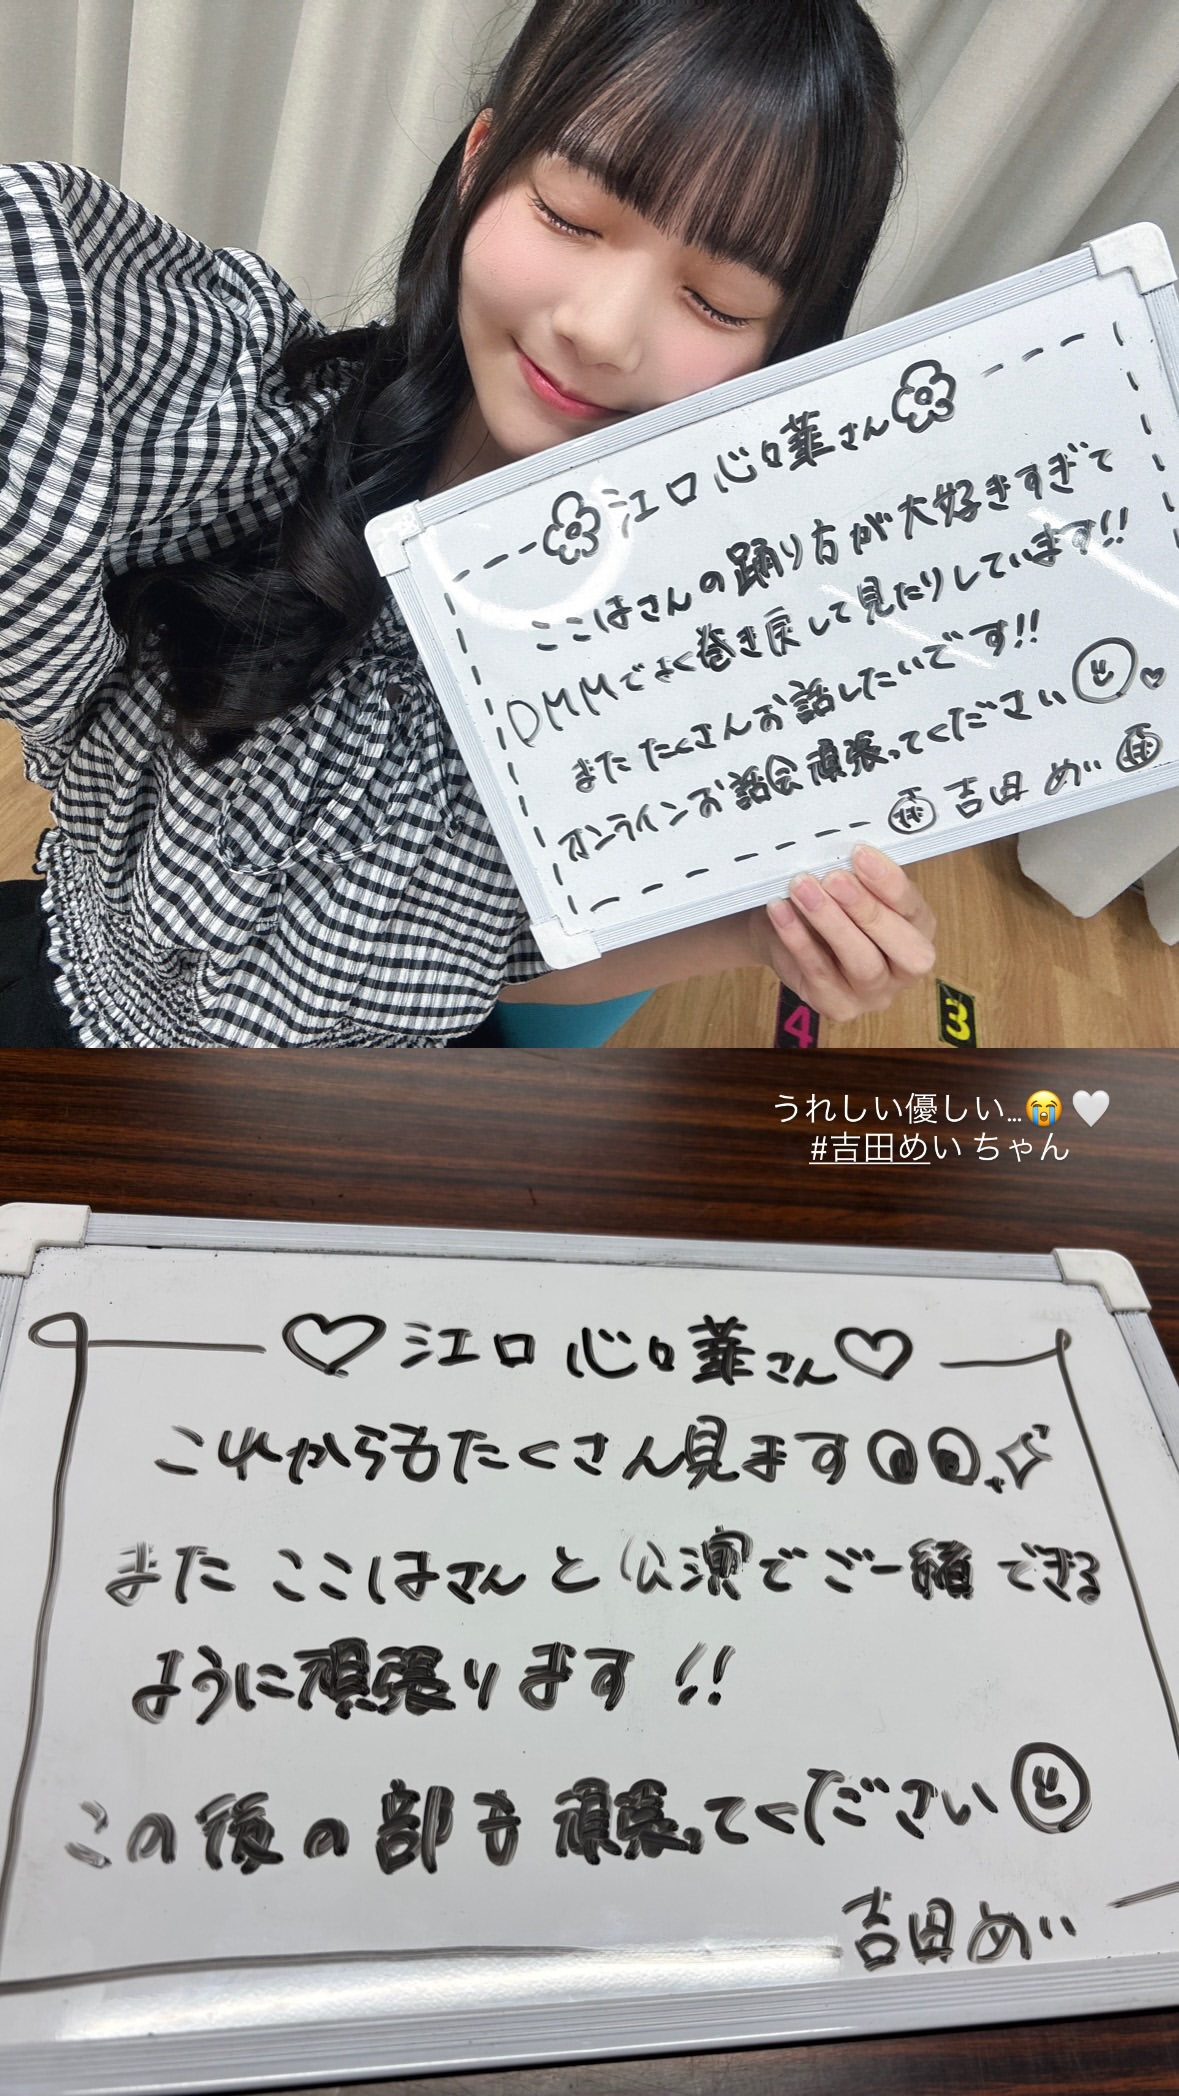 江口心々華さん
ここはさんの踊り方が大好きすぎて
DMMでよく巻き戻して見たりしています!!
またたくさんお話したいです!!
オンラインお話会頑張ってください
吉田めい
3
4
うれしい優しい…😭🤍
#吉田めい ちゃん
江口心々華さん
これからもたくさん見ます
また ここはさんと公演でご一緒できる
ように頑張ります!!
この後の部も頑張ってください
吉田めい